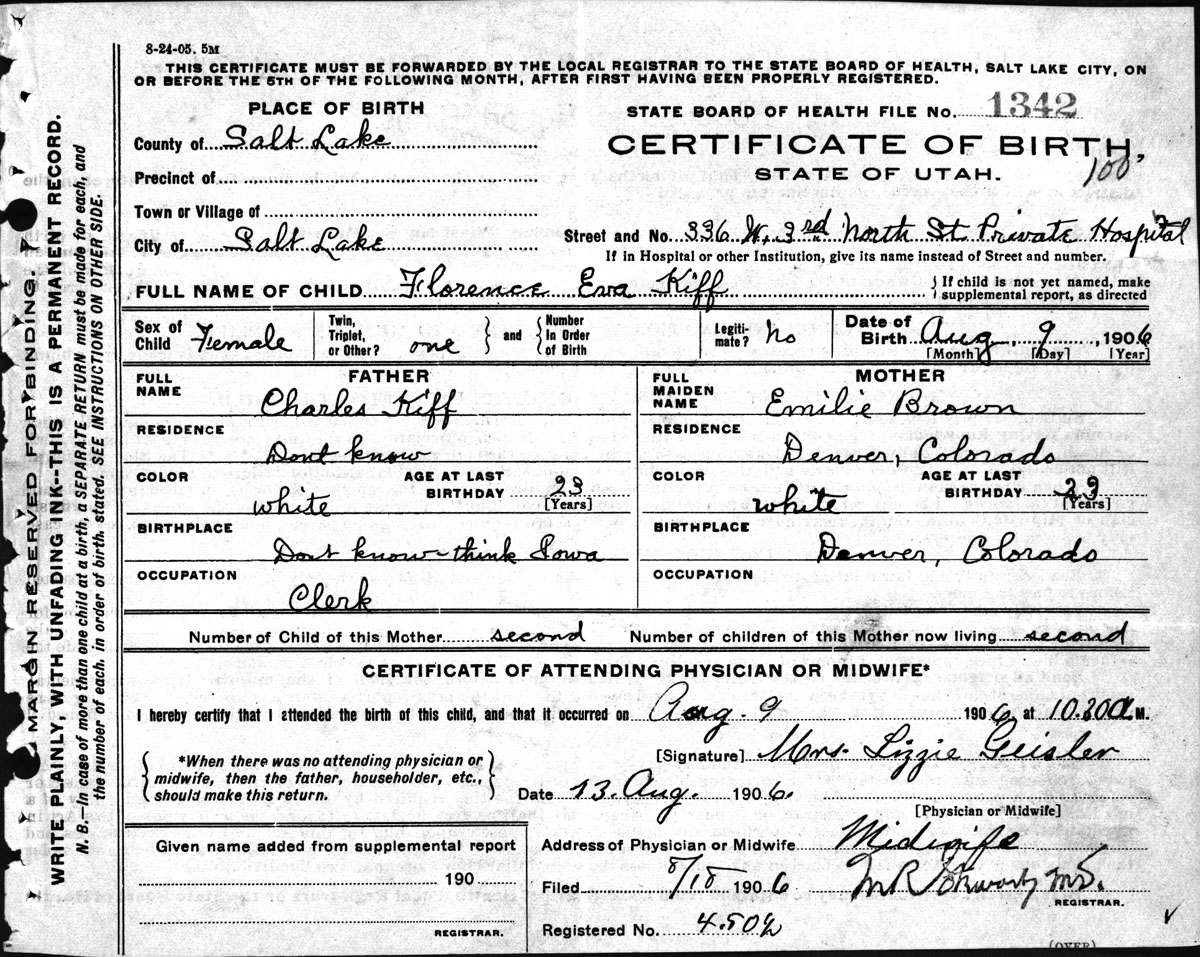 8-24-05. 5M
THIS CERTIFICATE MUST BE FORWARDED BY THE LOCAL REGISTRAR TO THE STATE BOARD OF HEALTH, SALT LAKE CITY, ON
OR BEFORE THE 5TH OF THE FOLLOWING MONTH, AFTER FIRST HAVING BEEN PROPERLY REGISTERED.
PLACE OF BIRTH
STATE BOARD OF HEALTH FILE No. 1342
County of Salt Lake
CERTIFICATE OF BIRTH,
Precinct of
STATE OF UTAH. 100
Town or Village of
City of Salt Lake
Street and No. 336 W. 3rd North St Private Hospital
If in Hospital or other Institution, give its name instead of Street and number.
FULL NAME OF CHILD Florence Eva Kiff
{If child is not yet named, make
supplemental report, as directed
Sex of Child Female
Twin, Triplet, or Other? one } and { Number In Order of Birth
Legitimate? No
Date of Birth Aug, 9, 1906
[Month] [Day] [Year]
FATHER
FULL NAME Charles Kiff
RESIDENCE
Dont know
COLOR white
AGE AT LAST BIRTHDAY 23
[Years]
BIRTHPLACE
Dont know-think Iowa
OCCUPATION
Clerk
MOTHER
FULL MAIDEN NAME Emilie Brown
RESIDENCE
Denver, Colorado
COLOR white
AGE AT LAST BIRTHDAY
[Years]
BIRTHPLACE
Denver, Colorado
OCCUPATION
Number of Child of this Mother second Number of children of this Mother now living second
CERTIFICATE OF ATTENDING PHYSICIAN OR MIDWIFE*
I hereby certify that I attended the birth of this child, and that it occurred on Aug. 9 1906 at 10.30 a M.
{ *When there was no attending physician or
midwife, then the father, householder, etc.,
should make this return. }
[Signature] Mrs. Lizzie Geisler
Date 13. Aug. 1906.
[Physician or Midwife]
Given name added from supplemental report
190
REGISTRAR.
Address of Physician or Midwife Midwife
Filed 8/15 1906
REGISTRAR.
Registered No.
(OVER)
MARGIN RESERVED FOR BINDING.
WRITE PLAINLY, WITH UNFADING INK--THIS IS A PERMANENT RECORD.
N. B.—In case of more than one child at a birth, a SEPARATE RETURN must be made for each, and
the number of each, in order of birth, stated. SEE INSTRUCTIONS ON OTHER SIDE.